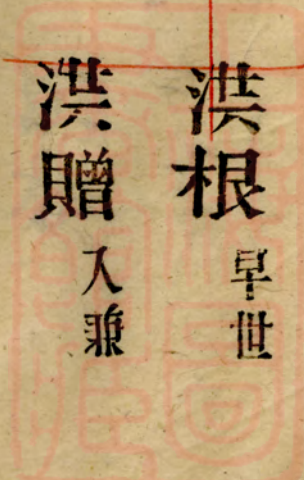 洪根 早世
洪贈 入兼